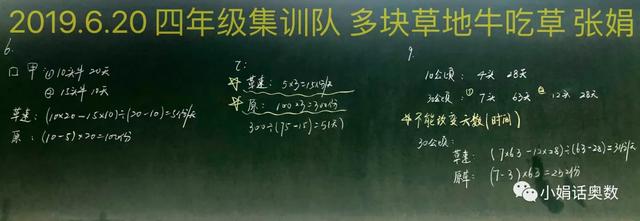 2019.6.20 四年级集训队 多块草地牛吃草 张娟
6.
口 甲: ① 10头牛 20天
② 15头牛 10天
草速: (10×20-15×10)÷(20-10)=5份/天
原: (10-5)×20=100份
乙:
草速: 5×3=15份/天
原: 100×3=300份
300÷(75-15)=5(天)
9.
10公顷: 4头 28天
30公顷: ① 7头 63天 ② 12头 28天
不能改变天数(时间)
30公顷:
草速: (7×63-12×28)÷(63-28)=3份/天
原草: (7-3)×63=252份
小娟话奥数